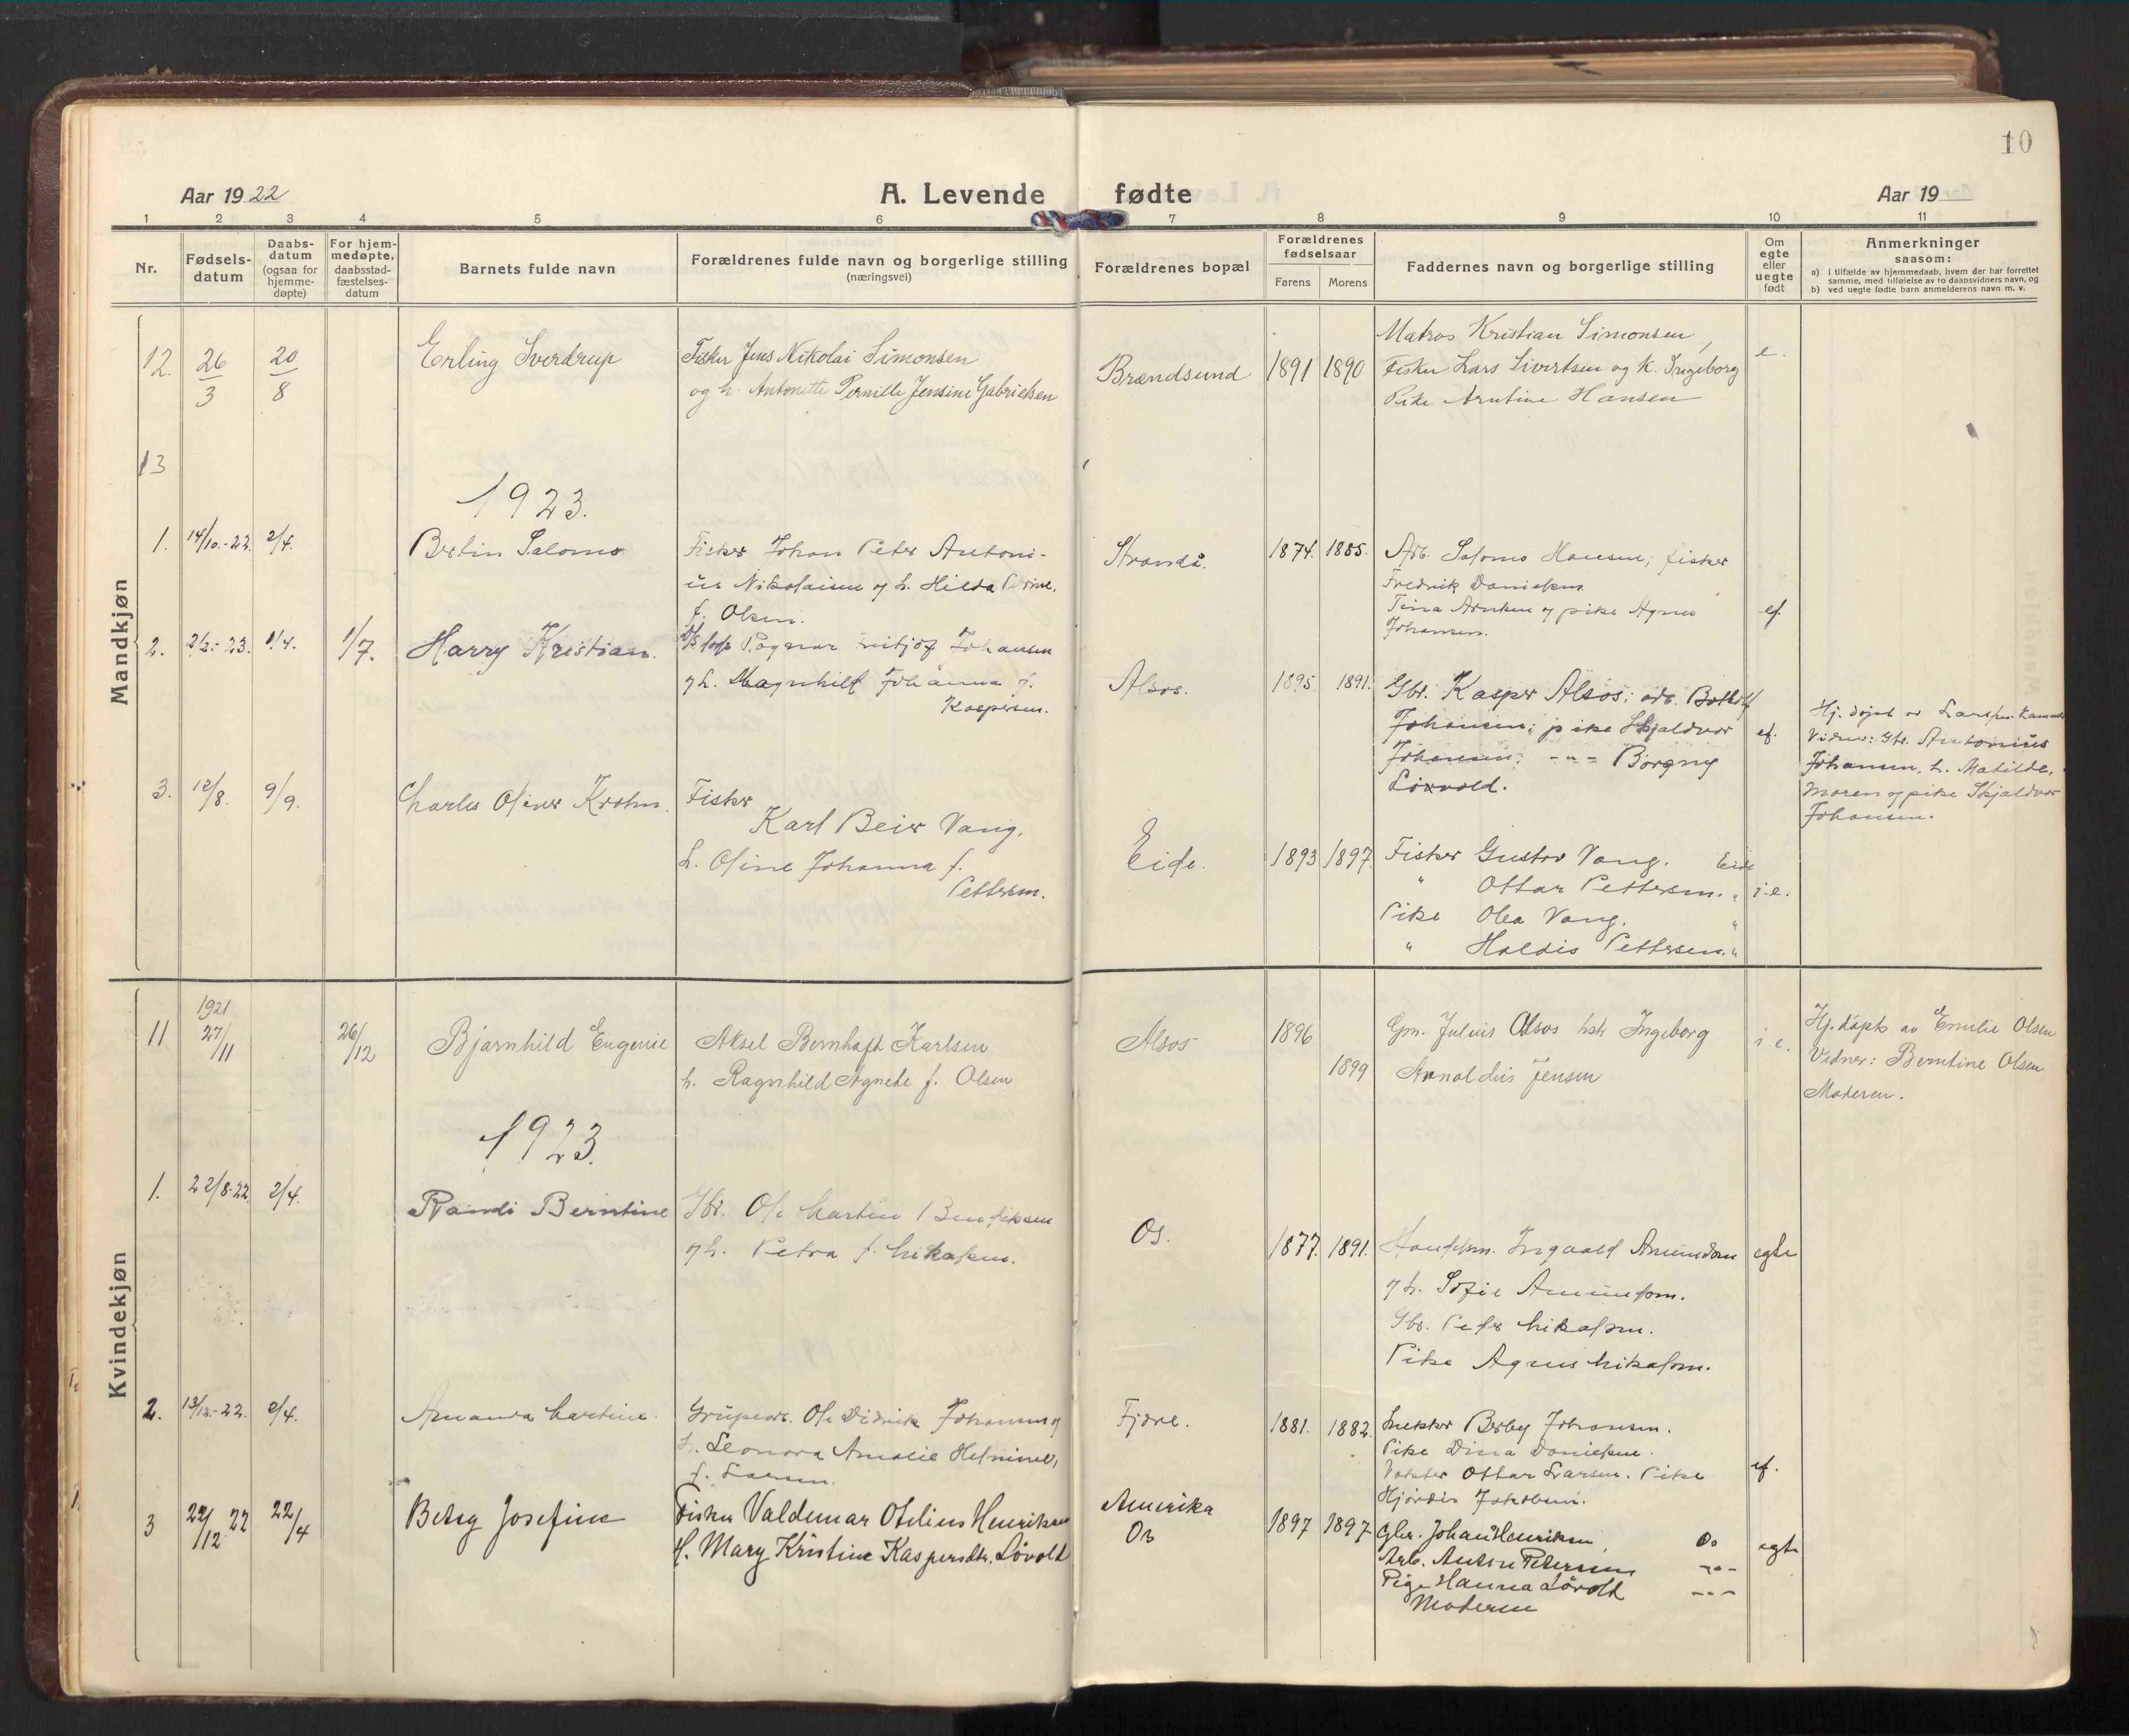 10
Aar 1922
A. Levende fødte
Aar 19
1 2 3 4 5 6 7 8 9 10 11
Nr.
Fødsels-
datum
Daabs-
datum
(ogsaa for
hjemme-
døpte)
For hjem-
medøpte,
daabsstad-
fæstelses-
datum
Barnets fulde navn
Forældrenes fulde navn og borgerlige stilling
(næringsvei)
Forældrenes bopæl
Forældrenes
fødselsaar
Farens Morens
Faddernes navn og borgerlige stilling
Om
egte
eller
uegte
født
Anmerkninger
saasom:
a) i tilfælde av hjemmedaab, hvem der har forrettet
samme, med tilføielse av to daabsvidners navn, og
b) ved uegte fødte barn anmelderens navn m. v.
Mandkjøn
12. 26/3 20/8 Erling Sverdrup
Fisker Jens Nikolai Simonsen
og h. Antonette Pernille Jensine Gabrielsen
Brændsund 1891 1890
Matros Kristian Simonsen,
Fisker Lars Sivertsen og K. Ingeborg
Pike Arntine Hansen
e.
13
1923.
1. 14/10.-22. 2/4. Bertin Salomo
Fisker Johan Peter Antoni-
us Nikolaisen og h. Hilda Perine,
f. Olsen.
Strandå. 1874. 1885.
Arb. Salomo Hansen; fisker
Fredrik Danielsen
Tina Arntsen og pike Agnes
Johansen.
ef.
2. 2/2.-23. 1/4. 1/7. Harry Kristian.
Ragnar Fritjof Johansen
og h. Magnhild Johanna f.
Kaspersen.
Alsos. 1895. 1891.
Gbr. Kasper Alsos; arb. Bottolf
Johansen; pike Skjaldvor
Johansen; -"- Borgny
Løvold.
ef.
Hj. døpt av
Vidner: Gbr. Antonius
Johansen, h. Matilde,
Moren og pike Skjaldvor
Johansen.
3. 12/8. 9/9. Charles Oliver Krohn.
Fisker
Karl Beier Vang.
h. Oline Johanna f.
Pettersen.
Eide. 1893 1897.
Fisker Gustav Vang. Eide
" Ottar Pettersen. "
Pike Olea Vang. "
" Haldis Pettersen. "
i.e.
Kvindekjøn
11 1921 27/11 26/12 Bjarnhild Eugenie
Aksel Bernhaft Karlsen
h. Ragnhild Agnete f. Olsen
Alsos 1896
1899
Gm. Julius Alsos hstr Ingeborg
Arnoldus Jensen
i.e.
Hj. døpt av Emilie Olsen
Vidner: Berntine Olsen
Moderen.
1923.
1. 22/8-22 2/4. Randi Berntine
Gbr. Ole Martin Bendiksen
og h. Petra f. Mikalsen.
Os. 1877. 1891.
Handelsm. Ingvald Amundsen
og h. Sofie Amundsen.
Gbr. Peder Mikalsen.
Pike Agnes Mikalsen.
egte
2. 13/12.-22. 2/4. Amanda Martine.
Grubearb. Ole Didrik Johansen og
h. Leonora Amalie Helmine,
f. Larsen.
Fjære. 1881. 1882.
Berby Johansen.
Pike Dina Danielsen.
Ottar Larsen. Pike
Hjørdis Jakobsen.
ef.
3 22/12 22 22/4 Betsy Josefine
Fisker Valdemar Otelius Henriksen
H. Mary Kristine Kaspersdtr. Løvold
Amerika
Os
1897 1897
Gbr. Johan Henriksen, Os
Arb. Anton Petersen -"-
Pige Hanna Løvold -"-
Moderen
egte